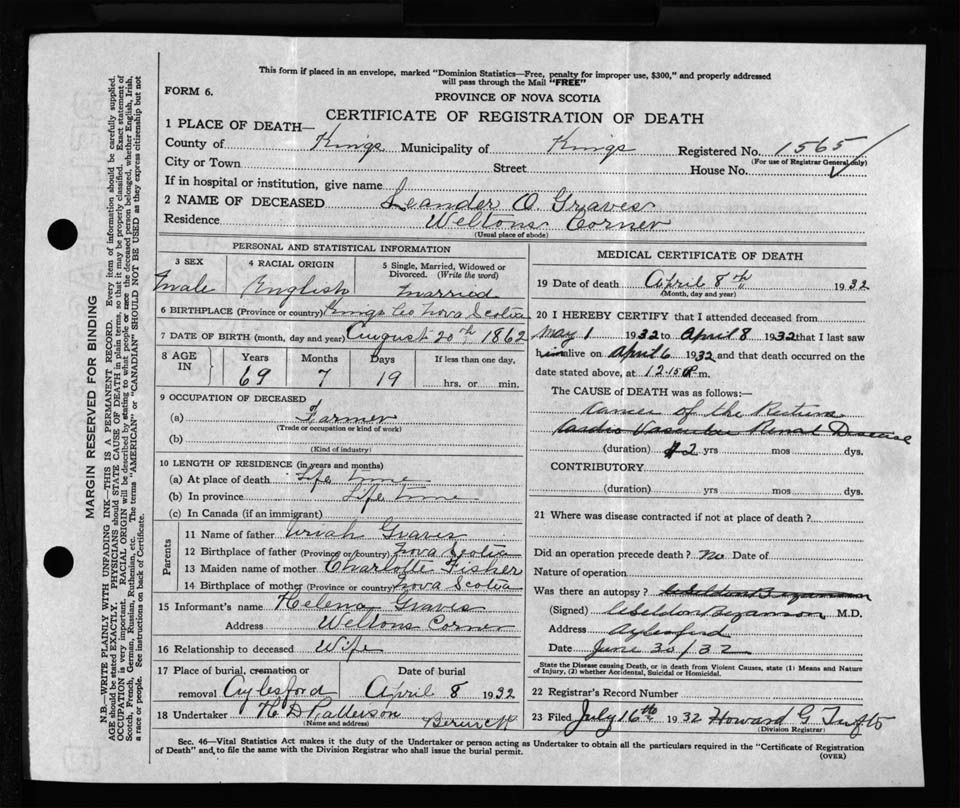 This form if placed in an envelope, marked "Dominion Statistics—Free, penalty for improper use, $300," and properly addressed
will pass through the Mail "FREE"
FORM 6.
PROVINCE OF NOVA SCOTIA
CERTIFICATE OF REGISTRATION OF DEATH
1 PLACE OF DEATH—
County of Kings Municipality of Kings Registered No. 1565
(For use of Registrar General only)
City or Town Street House No.
If in hospital or institution, give name
2 NAME OF DECEASED Leander O. Graves
Residence Weltons Corner
(Usual place of abode)
PERSONAL AND STATISTICAL INFORMATION
3 SEX 4 RACIAL ORIGIN 5 Single, Married, Widowed or
Divorced. (Write the word)
Male English Married
6 BIRTHPLACE (Province or country) Kings Co Nova Scotia
7 DATE OF BIRTH (month, day and year) August 20th 1862
8 AGE IN Years Months Days If less than one day,
69 7 19 hrs. or min.
9 OCCUPATION OF DECEASED
(a) Farmer
(Trade or occupation or kind of work)
(b)
(Kind of industry)
10 LENGTH OF RESIDENCE (in years and months)
(a) At place of death Life time
(b) In province Life time
(c) In Canada (if an immigrant)
Parents
11 Name of father Uriah Graves
12 Birthplace of father (Province or country) Nova Scotia
13 Maiden name of mother Charlotte Fisher
14 Birthplace of mother (Province or country) Nova Scotia
15 Informant's name Helena Graves
Address Weltons Corner
16 Relationship to deceased Wife
17 Place of burial, cremation or Date of burial
removal Aylesford April 8 1932
18 Undertaker H D Patterson Berwick
(Name and address)
MEDICAL CERTIFICATE OF DEATH
19 Date of death April 8th 1932
(Month, day and year)
20 I HEREBY CERTIFY that I attended deceased from
May 1 1932 to April 8 1932 that I last saw
him alive on April 6 1932 and that death occurred on the
date stated above, at 12.15 P. m.
The CAUSE OF DEATH was as follows:—
Cancer of the Rectum
Cardio Vascular Renal Disease
(duration) 2 yrs mos dys.
CONTRIBUTORY
(duration) yrs mos dys.
21 Where was disease contracted if not at place of death?
Did an operation precede death? No Date of
Nature of operation
Was there an autopsy?
(Signed) Bezanson M.D.
Address Aylesford
Date June 30/32
State the Disease causing Death, or in death from Violent Causes, state (1) Means and Nature
of Injury, (2) whether Accidental, Suicidal or Homicidal.
22 Registrar's Record Number
23 Filed July 16th 1932 Howard G Tufts
(Division Registrar)
Sec. 46—Vital Statistics Act makes it the duty of the Undertaker or person acting as Undertaker to obtain all the particulars required in the "Certificate of Registration
of Death", and to file the same with the Division Registrar who shall issue the burial permit.
(OVER)
MARGIN RESERVED FOR BINDING
N.B.—WRITE PLAINLY WITH UNFADING INK—THIS IS A PERMANENT RECORD. Every item of information should be carefully supplied.
AGE should be stated EXACTLY. PHYSICIANS should STATE CAUSE OF DEATH in plain terms, so that it may be properly classified. Exact statement of
OCCUPATION is very important. RACIAL ORIGIN will be described by stating to what people or race the deceased person belonged, whether English, Irish,
Scotch, French, German, Russian, Ruthenian, etc. The terms "AMERICAN" or "CANADIAN" SHOULD NOT BE USED as they express citizenship but not
a race or people. See instructions on back of Certificate.